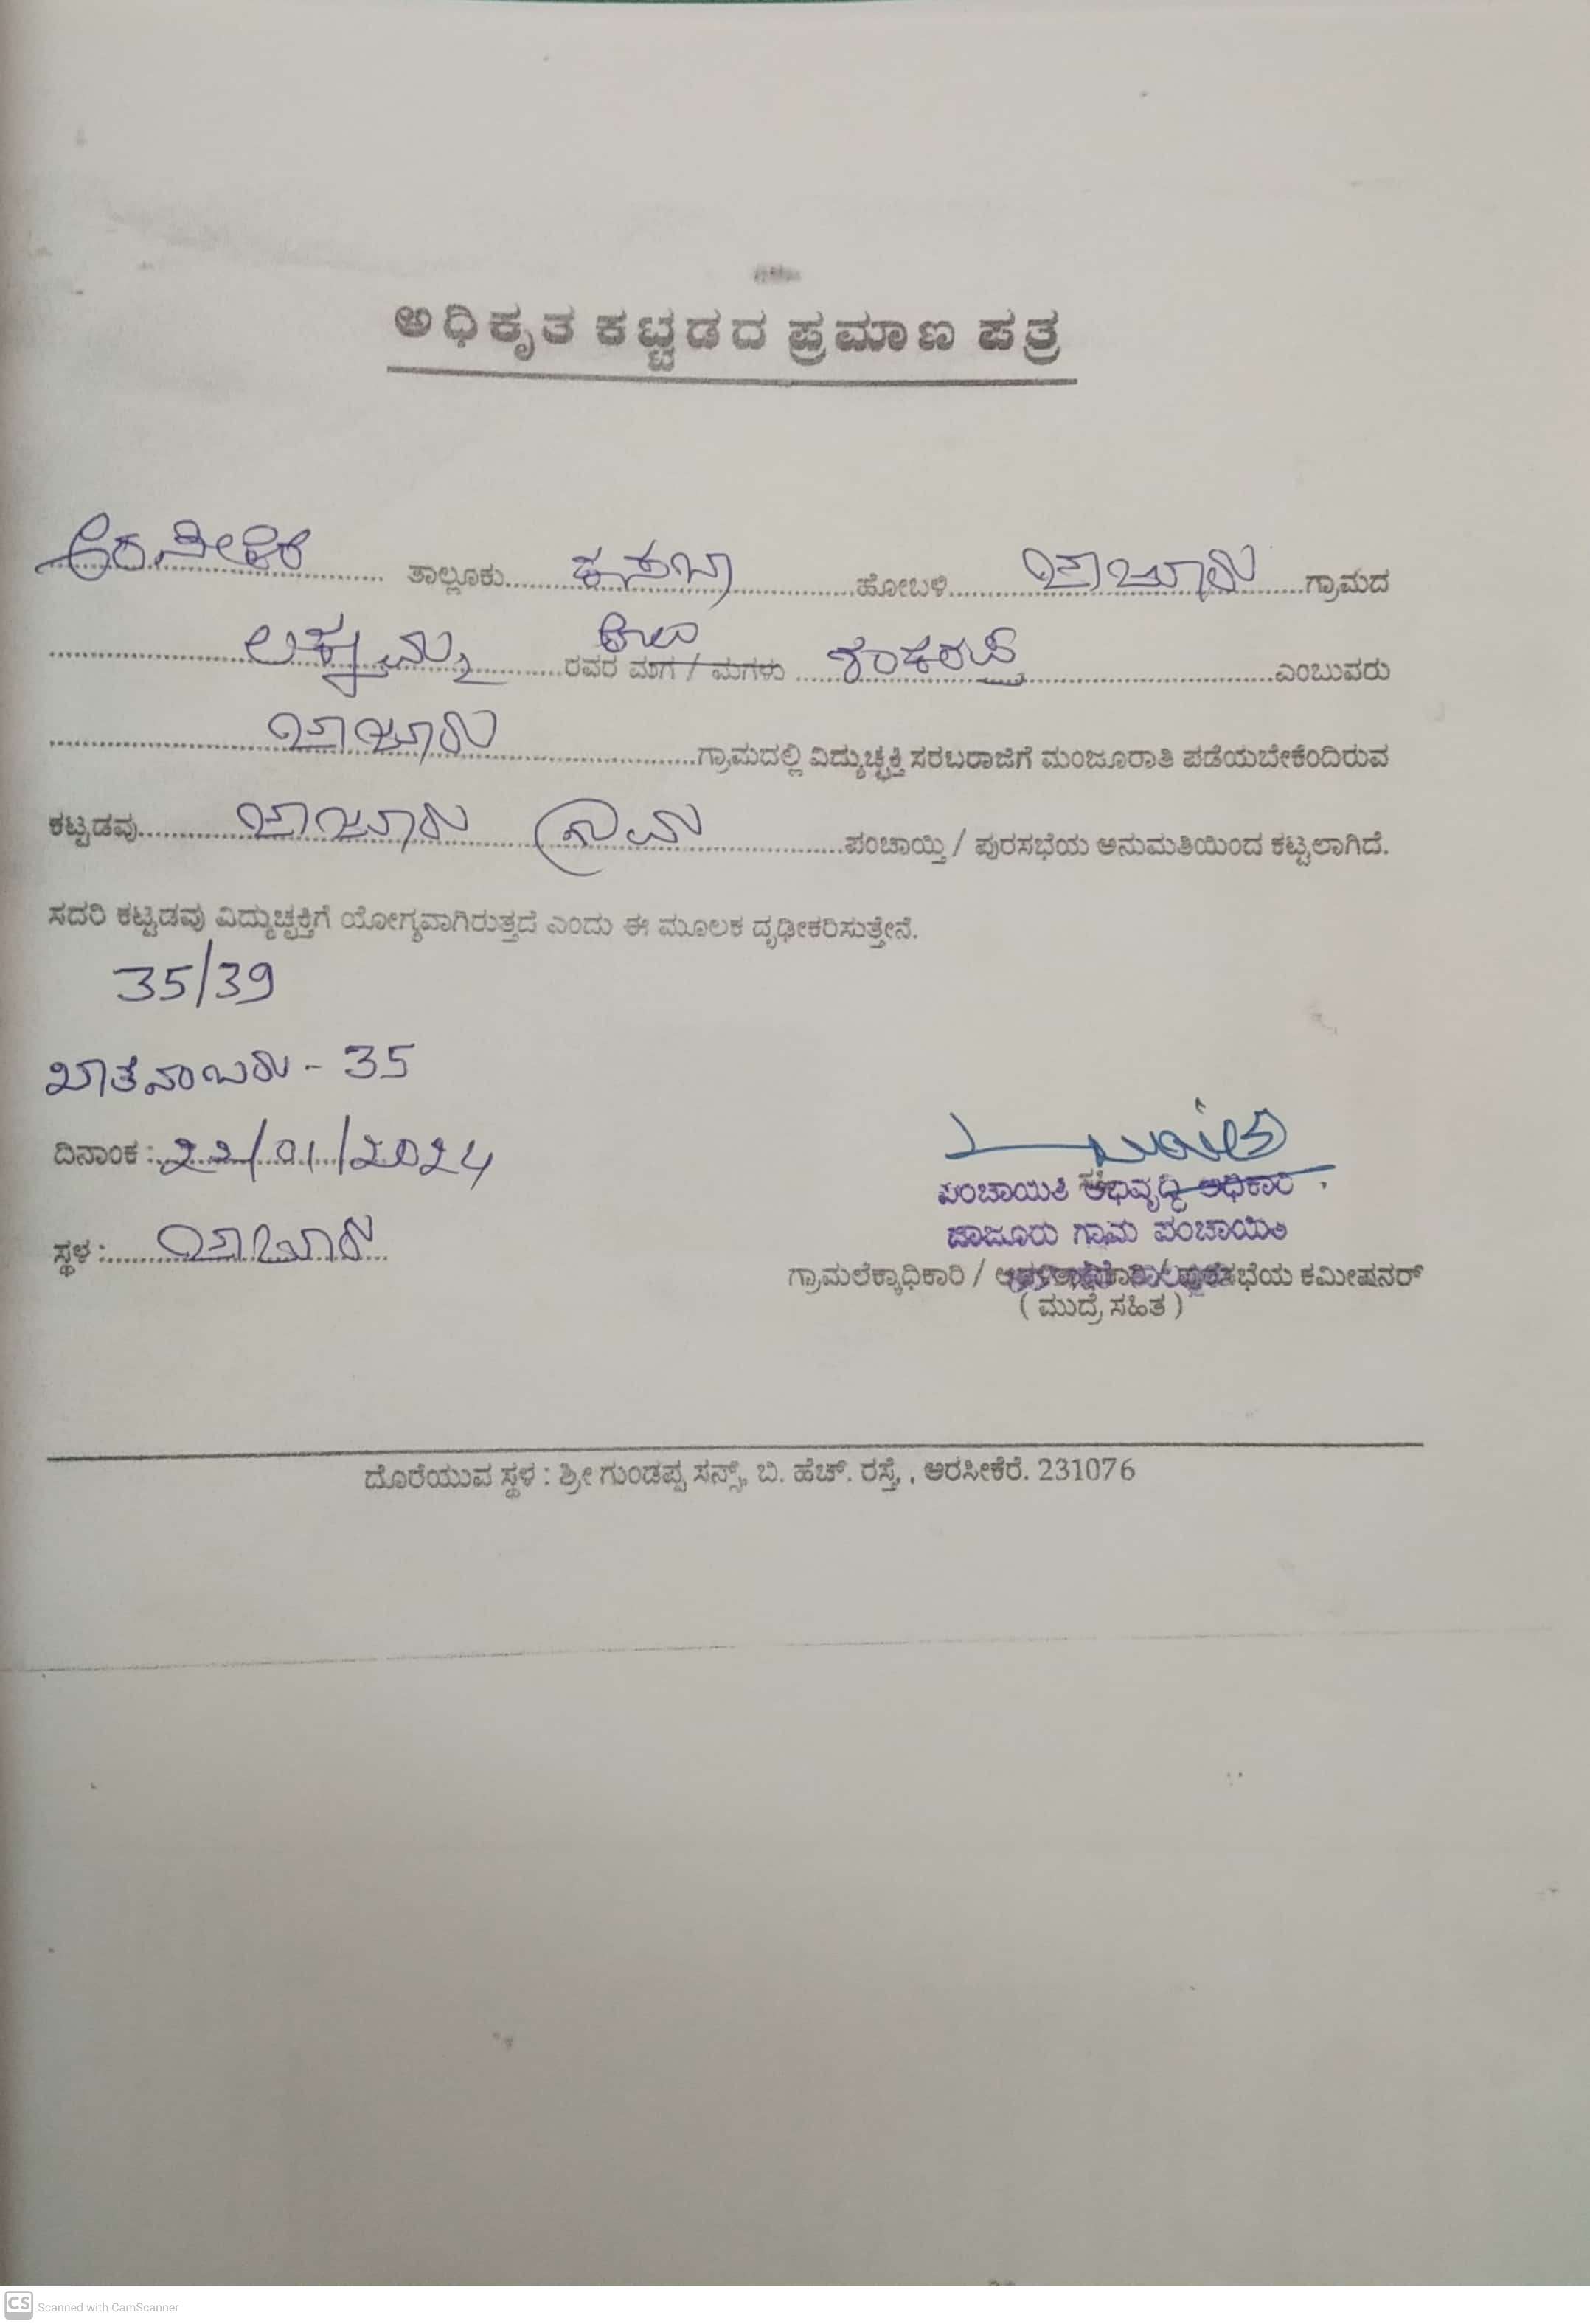 ಅಧಿಕೃತ ಕಟ್ಟಡದ ಪ್ರಮಾಣ ಪತ್ರ
ಅರಸೀಕೆರೆ ತಾಲ್ಲೂಕು ಕಸಬಾ ಹೋಬಳಿ ಜಾಜೂರು ಗ್ರಾಮದ
ಲಕ್ಷ್ಮಮ್ಮ ರವರ ಮಗ / ಮಗಳು ಶಂಕರಪ್ಪ ಎಂಬುವರು
ಜಾಜೂರು ಗ್ರಾಮದಲ್ಲಿ ವಿದ್ಯುಚ್ಛಕ್ತಿ ಸರಬರಾಜಿಗೆ ಮಂಜೂರಾತಿ ಪಡೆಯಬೇಕೆಂದಿರುವ
ಕಟ್ಟಡವು ಜಾಜೂರು ಗ್ರಾಮ ಪಂಚಾಯ್ತಿ / ಪುರಸಭೆಯ ಅನುಮತಿಯಿಂದ ಕಟ್ಟಲಾಗಿದೆ.
ಸದರಿ ಕಟ್ಟಡವು ವಿದ್ಯುಚ್ಛಕ್ತಿಗೆ ಯೋಗ್ಯವಾಗಿರುತ್ತದೆ ಎಂದು ಈ ಮೂಲಕ ದೃಢೀಕರಿಸುತ್ತೇನೆ.
35/39
ಖಾತೆ ನಂಬರು - 35
ದಿನಾಂಕ : 22/01/2024
ಪಂಚಾಯಿತಿ ಅಭಿವೃದ್ಧಿ ಅಧಿಕಾರಿ
ಜಾಜೂರು ಗ್ರಾಮ ಪಂಚಾಯಿತಿ
ಸ್ಥಳ : ಜಾಜೂರು
ಗ್ರಾಮಲೆಕ್ಕಾಧಿಕಾರಿ / ಪುರಸಭೆಯ ಕಮೀಷನರ್
( ಮುದ್ರೆ ಸಹಿತ )
ದೊರೆಯುವ ಸ್ಥಳ : ಶ್ರೀ ಗುಂಡಪ್ಪ ಸನ್ಸ್, ಬಿ. ಹೆಚ್. ರಸ್ತೆ, , ಅರಸೀಕೆರೆ. 231076
CS Scanned with CamScanner